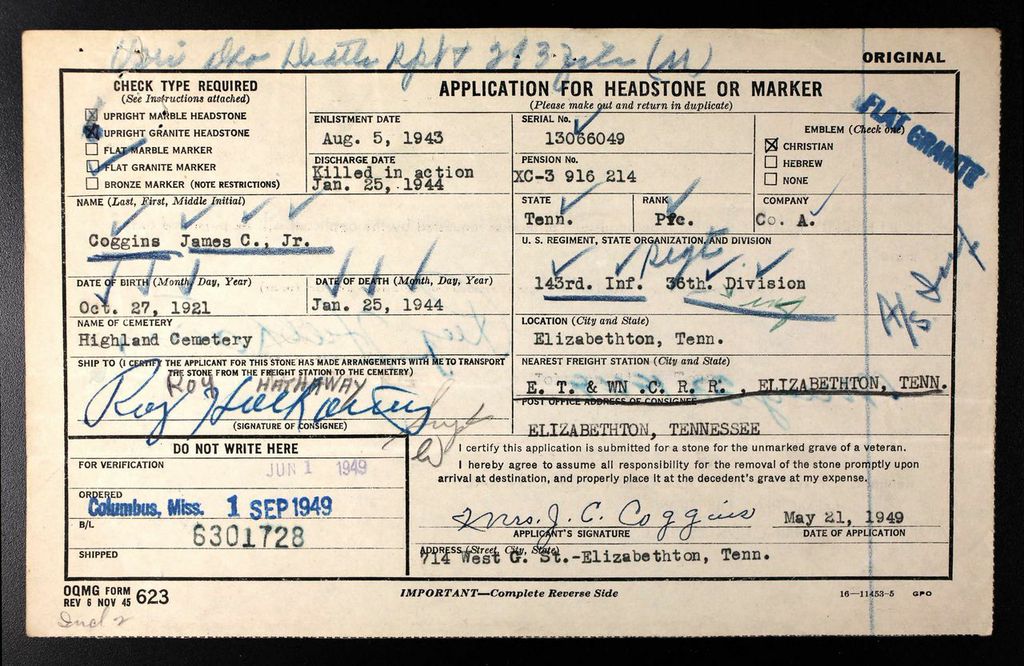 ORIGINAL
CHECK TYPE REQUIRED
(See Instructions attached)
UPRIGHT MARBLE HEADSTONE
UPRIGHT GRANITE HEADSTONE
FLAT MARBLE MARKER
FLAT GRANITE MARKER
BRONZE MARKER (NOTE RESTRICTIONS)
APPLICATION FOR HEADSTONE OR MARKER
(Please make out and return in duplicate)
ENLISTMENT DATE
Aug. 5, 1943
DISCHARGE DATE
Killed in action
Jan. 25, 1944
SERIAL No.
13066049
PENSION No.
XC-3 916 214
EMBLEM (Check one)
CHRISTIAN
HEBREW
NONE
FLAT GRANITE
NAME (Last, First, Middle Initial)
Coggins James C., Jr.
STATE
Tenn.
RANK
Pfc.
COMPANY
Co. A.
U. S. REGIMENT, STATE ORGANIZATION, AND DIVISION
Regt
143rd. Inf. 36th. Division
DATE OF BIRTH (Month, Day, Year)
Oct. 27, 1921
DATE OF DEATH (Month, Day, Year)
Jan. 25, 1944
NAME OF CEMETERY
Highland Cemetery
LOCATION (City and State)
Elizabethton, Tenn.
SHIP TO (I CERTIFY THE APPLICANT FOR THIS STONE HAS MADE ARRANGEMENTS WITH ME TO TRANSPORT
THE STONE FROM THE FREIGHT STATION TO THE CEMETERY)
ROY HATHAWAY
Roy Hathaway
Supt
(SIGNATURE OF CONSIGNEE)
NEAREST FREIGHT STATION (City and State)
E. T. & WN .C. R. R. , ELIZABETHTON, TENN.
POST OFFICE ADDRESS OF CONSIGNEE
ELIZABETHTON, TENNESSEE
DO NOT WRITE HERE
FOR VERIFICATION
JUN 1 1949
ORDERED
Columbus, Miss. 1 SEP 1949
B/L
6301728
SHIPPED
I certify this application is submitted for a stone for the unmarked grave of a veteran.
I hereby agree to assume all responsibility for the removal of the stone promptly upon
arrival at destination, and properly place it at the decedent's grave at my expense.
Mrs. J. C. Coggins
May 21, 1949
APPLICANT'S SIGNATURE
DATE OF APPLICATION
ADDRESS (Street, City, State)
714 West G. St.-Elizabethton, Tenn.
OQMG FORM
REV 6 NOV 45 623
IMPORTANT—Complete Reverse Side
16—11453-5 GPO